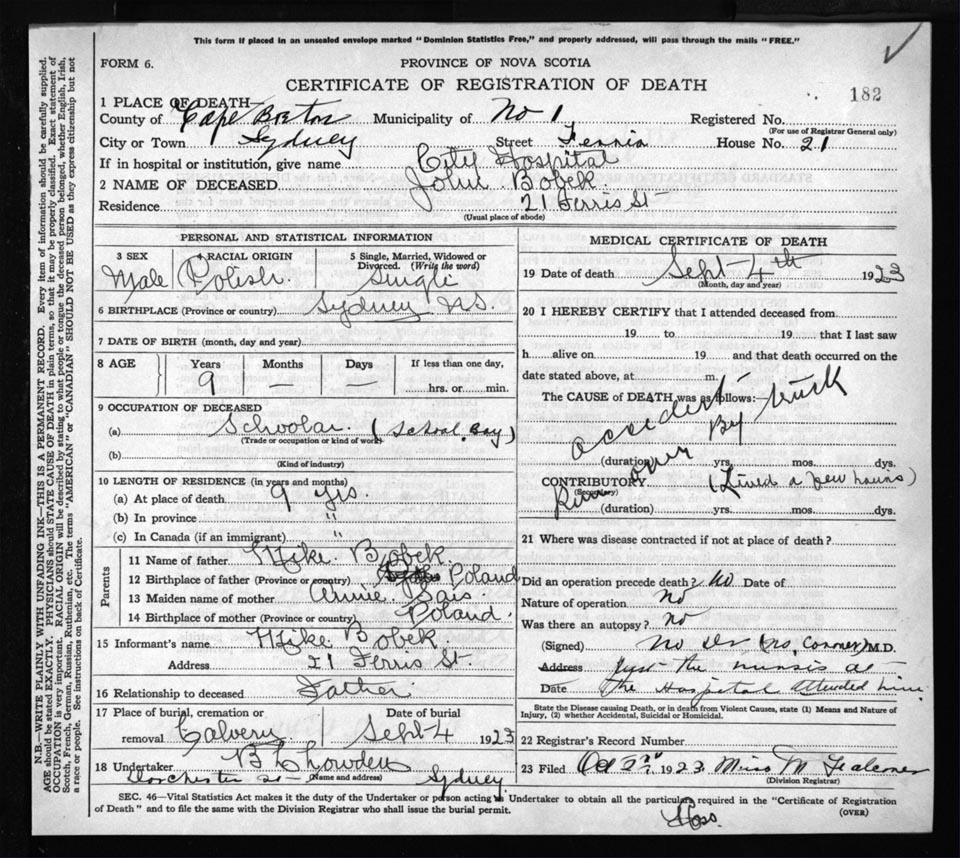 This form if placed in an unsealed envelope marked "Dominion Statistics Free," and properly addressed, will pass through the mails "FREE."
FORM 6.
PROVINCE OF NOVA SCOTIA
CERTIFICATE OF REGISTRATION OF DEATH
182
1 PLACE OF DEATH
County of Cape Breton Municipality of No 1 Registered No.
(For use of Registrar General only)
City or Town Sydney Street Ferris House No. 21
If in hospital or institution, give name City Hospital
2 NAME OF DECEASED John Bobek
Residence 21 Ferris St
(Usual place of abode)
PERSONAL AND STATISTICAL INFORMATION
3 SEX 4 RACIAL ORIGIN 5 Single, Married, Widowed or Divorced. (Write the word)
Male Polish Single
6 BIRTHPLACE (Province or country) Sydney NS
7 DATE OF BIRTH (month, day and year)
8 AGE Years Months Days If less than one day,
9 — — hrs. or min.
9 OCCUPATION OF DECEASED
(a) Schoolar (School Boy)
(Trade or occupation or kind of work)
(b)
(Kind of industry)
10 LENGTH OF RESIDENCE (in years and months)
(a) At place of death 9 yrs.
(b) In province "
(c) In Canada (if an immigrant) "
Parents
11 Name of father Mike Bobek
12 Birthplace of father (Province or country) Poland
13 Maiden name of mother Annie
14 Birthplace of mother (Province or country) Poland
15 Informant's name Mike Bobek
Address 21 Ferris St.
16 Relationship to deceased Father
17 Place of burial, cremation or removal Calvery Date of burial Sept 4 1923
18 Undertaker
Dorchester St (Name and address) Sydney
MEDICAL CERTIFICATE OF DEATH
19 Date of death Sept 4th 1923
(Month, day and year)
20 I HEREBY CERTIFY that I attended deceased from
19 to 19 that I last saw
h alive on 19 and that death occurred on the
date stated above, at m.
The CAUSE of DEATH was as follows:
accident
Run over By truck
(duration) yrs. mos. dys.
CONTRIBUTORY (Lived a few hours)
(Secondary)
(duration) yrs. mos. dys.
21 Where was disease contracted if not at place of death?
Did an operation precede death? No Date of
Nature of operation no
Was there an autopsy? no
(Signed) No Dr (no Conner) M.D.
Address Just the nursis at
Date The Hospital attended him
State the Disease causing Death, or in death from Violent Causes, state (1) Means and Nature of
Injury, (2) whether Accidental, Suicidal or Homicidal.
22 Registrar's Record Number
23 Filed Oct 1923 Miss M
(Division Registrar)
SEC. 46—Vital Statistics Act makes it the duty of the Undertaker or person acting as Undertaker to obtain all the particulars required in the "Certificate of Registration
of Death" and to file the same with the Division Registrar who shall issue the burial permit.
(OVER)
N.B.—WRITE PLAINLY WITH UNFADING INK—THIS IS A PERMANENT RECORD. Every item of information should be carefully supplied.
AGE should be stated EXACTLY. PHYSICIANS should STATE CAUSE OF DEATH in plain terms, so that it may be properly classified. Exact statement of
OCCUPATION is very important. RACIAL ORIGIN will be described by stating to what people or tongue the deceased person belonged, whether English, Irish,
Scotch, French, German, Russian, Ruthenian, etc. The terms "AMERICAN" or "CANADIAN" SHOULD NOT BE USED as they express citizenship but not
a race or people. See instructions on back of Certificate.